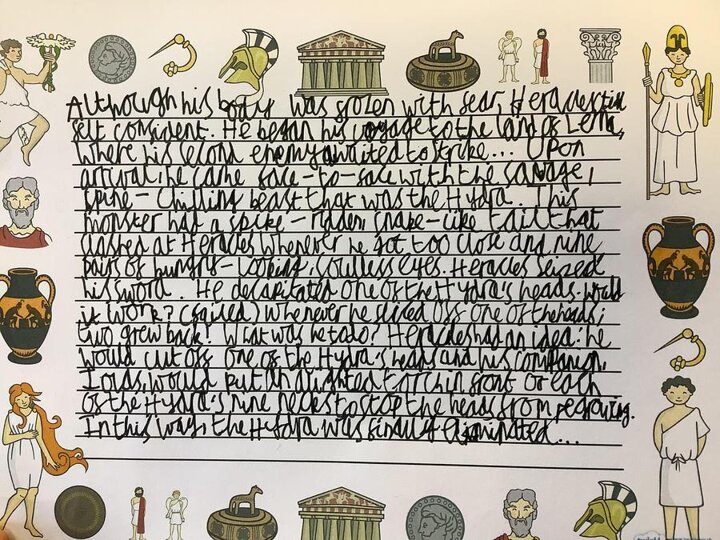 Although his body was frozen with fear, Heracles still
felt confident. He began his voyage to the land of Lerna,
where his second enemy awaited to strike... Upon
arrival, he came face-to-face with the savage,
spine-chilling beast that was the Hydra. This
monster had a spike-ridden, snake-like tail that
lashed at Heracles whenever he got too close and nine
pairs of hungry-looking, soulless eyes. Heracles seized
his sword. He decapitated one of the Hydra's heads. Would
it work? (failed) Whenever he sliced off one of the heads,
two grew back! What was he to do? Heracles had an idea: he
would cut off one of the Hydra's heads and his companion,
would put an alighted torch in front of each
of the Hydra's nine necks to stop the heads from regrowing.
In this way, the Hydra was finally eliminated...